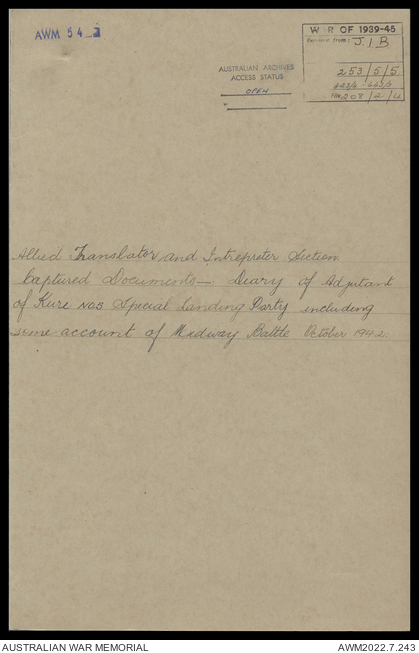 AWM 54
WAR OF 1939-45
Received from: J.I.B
AUSTRALIAN ARCHIVES
ACCESS STATUS
OPEN
253/5/5
423/6
208/2/4
Allied Translator and Intrepreter Section
Captured Documents — Diary of Adjutant
of Kure No5 Special Landing Party including
some account of Midway Battle October 1942.
AUSTRALIAN WAR MEMORIAL
AWM2022.7.243